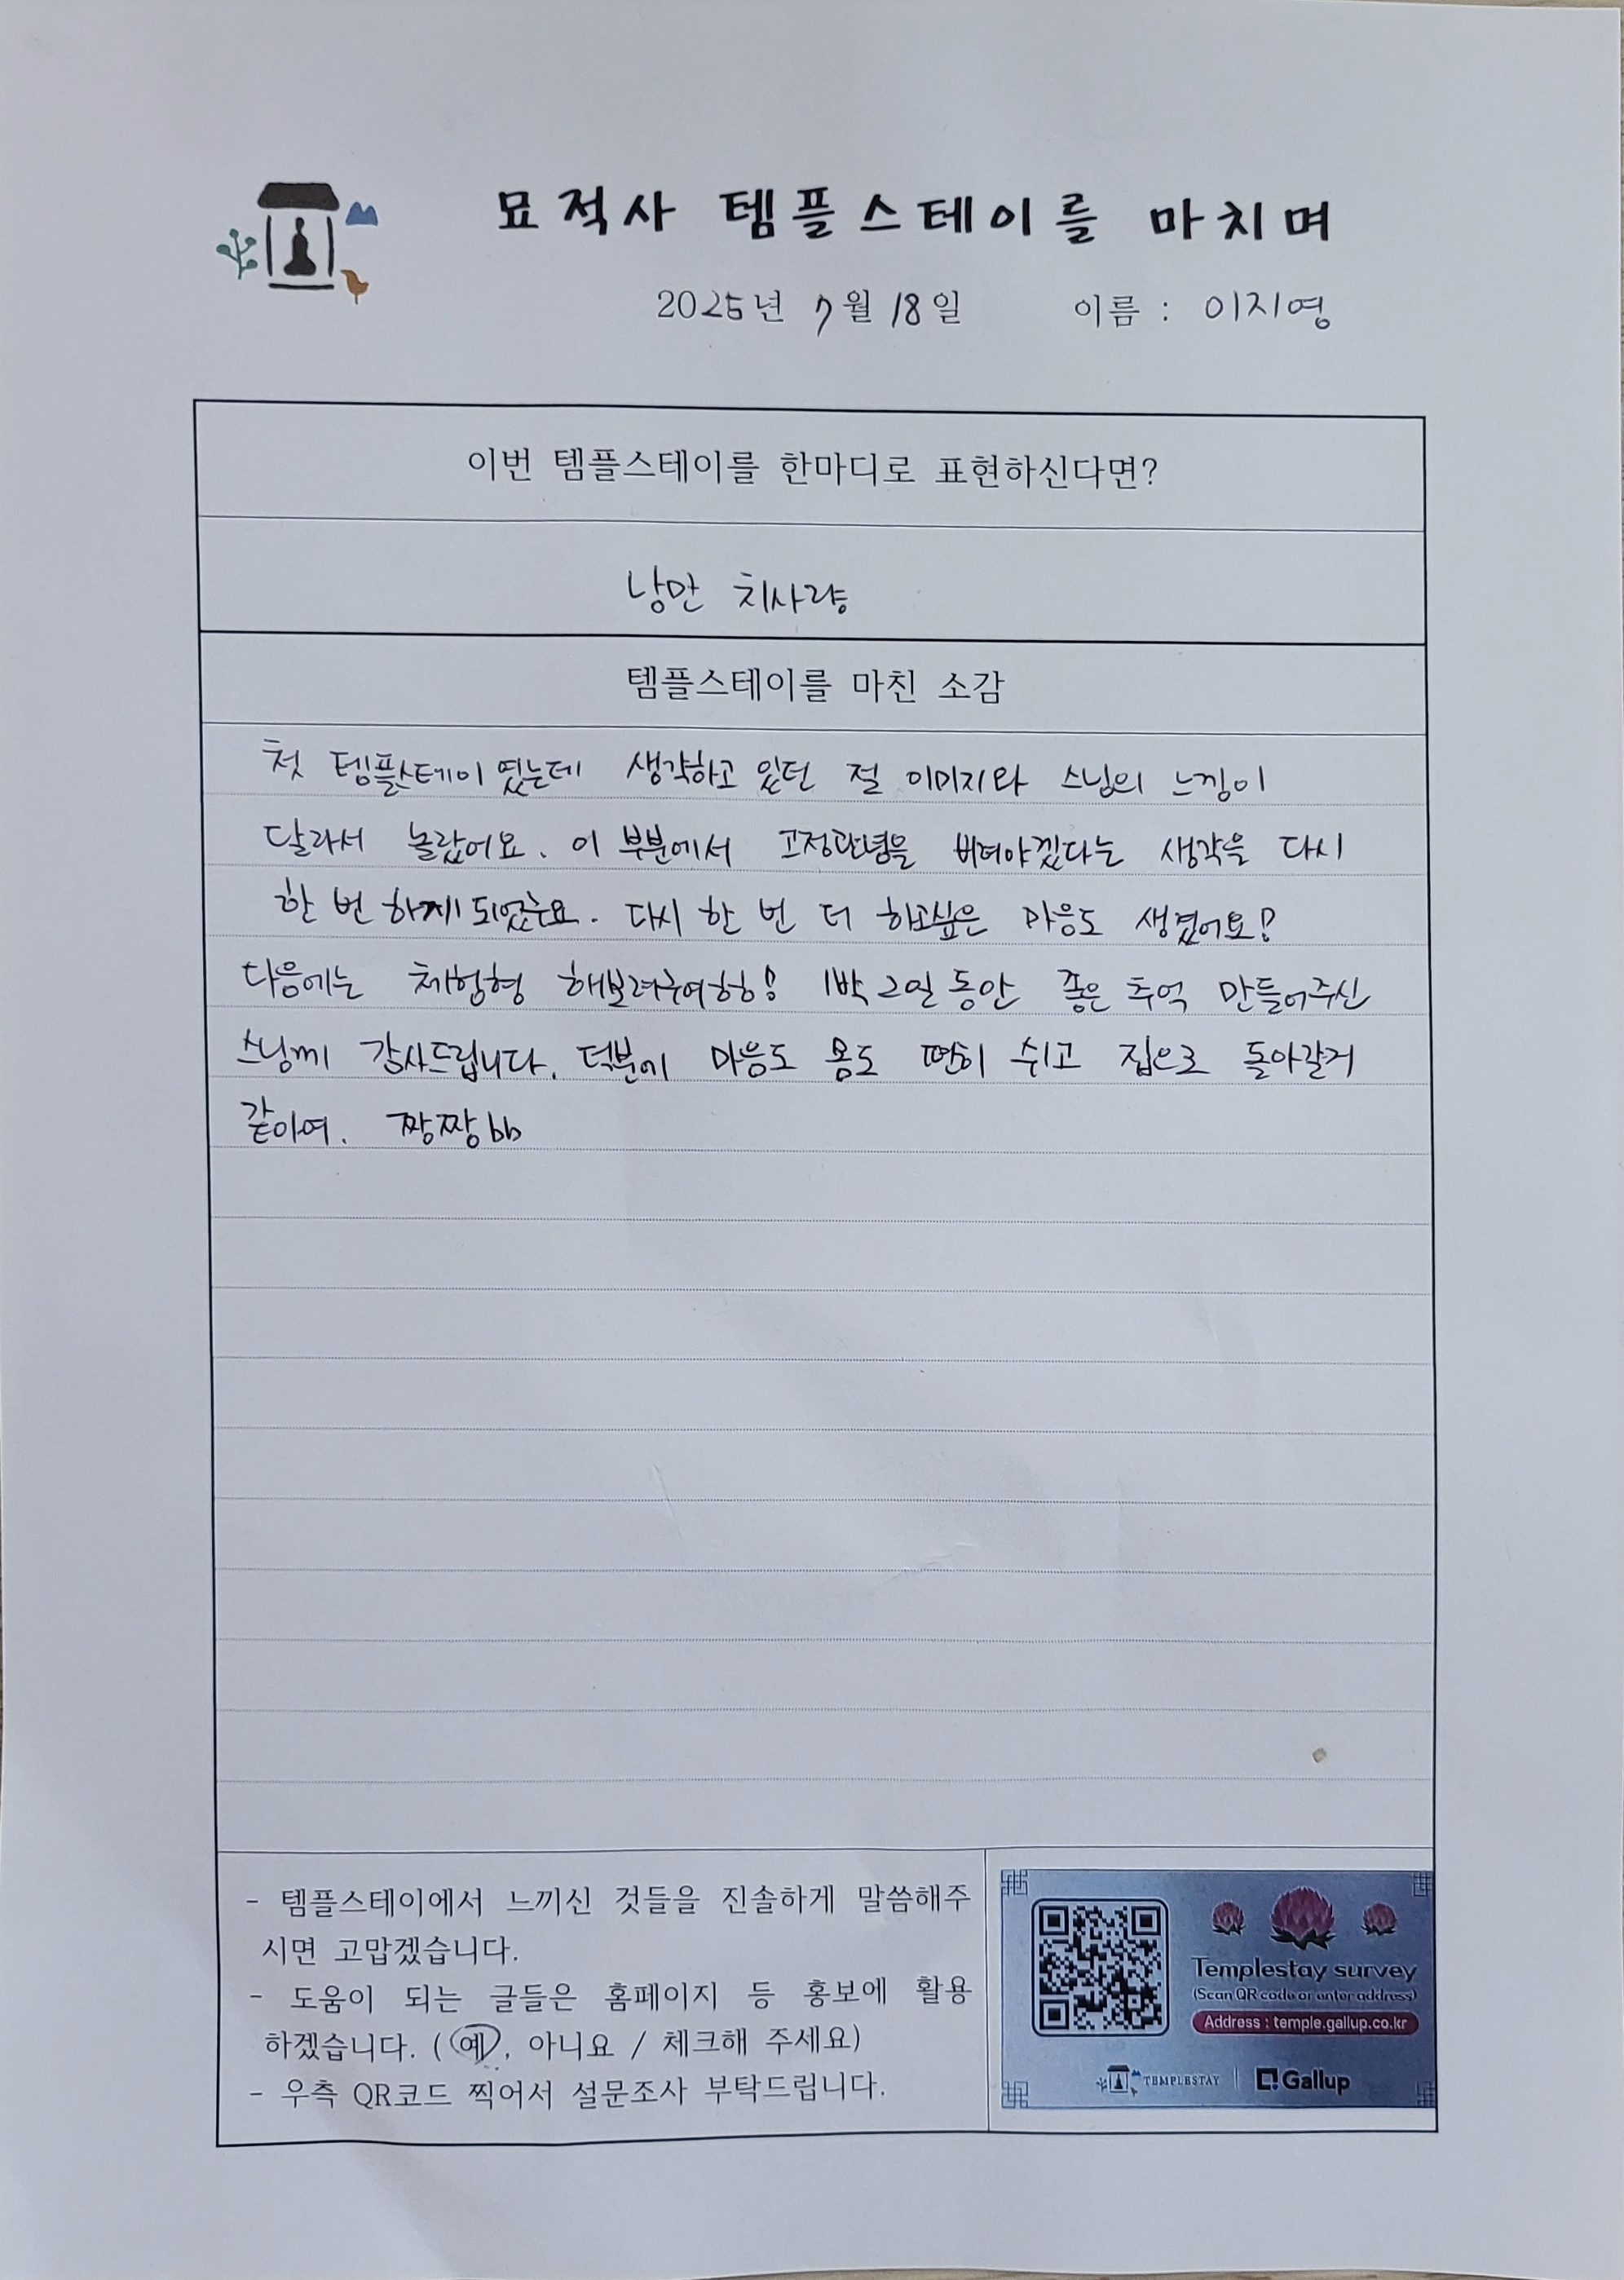 묘적사 템플스테이를 마치며
2025년 7월 18일 이름 : 이지영
이번 템플스테이를 한마디로 표현하신다면?
낭만 치사량
템플스테이를 마친 소감
첫 템플스테이였는데 생각하고 있던 절 이미지와 스님의 느낌이
달라서 놀랐어요. 이 부분에서 고정관념을 버려야겠다는 생각을 다시
한 번 하게 되었습니다. 다시 한 번 더 하고싶은 마음도 생겼어요!
다음에는 체험형 해보려구여ㅎㅎ! 1박 2일 동안 좋은 추억 만들어주신
스님께 감사드립니다. 덕분에 마음도 몸도 편히 쉬고 집으로 돌아갈거
같아여. 짱짱bb
- 템플스테이에서 느끼신 것들을 진솔하게 말씀해주
시면 고맙겠습니다.
- 도움이 되는 글들은 홈페이지 등 홍보에 활용
하겠습니다. (예, 아니요 / 체크해 주세요)
- 우측 QR코드 찍어서 설문조사 부탁드립니다.
Templestay survey
(Scan QR code or enter address)
Address : temple.gallup.co.kr
TEMPLESTAY Gallup